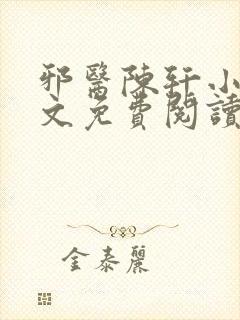 邪醫陳轩小
文免費閱讀
金泰麗